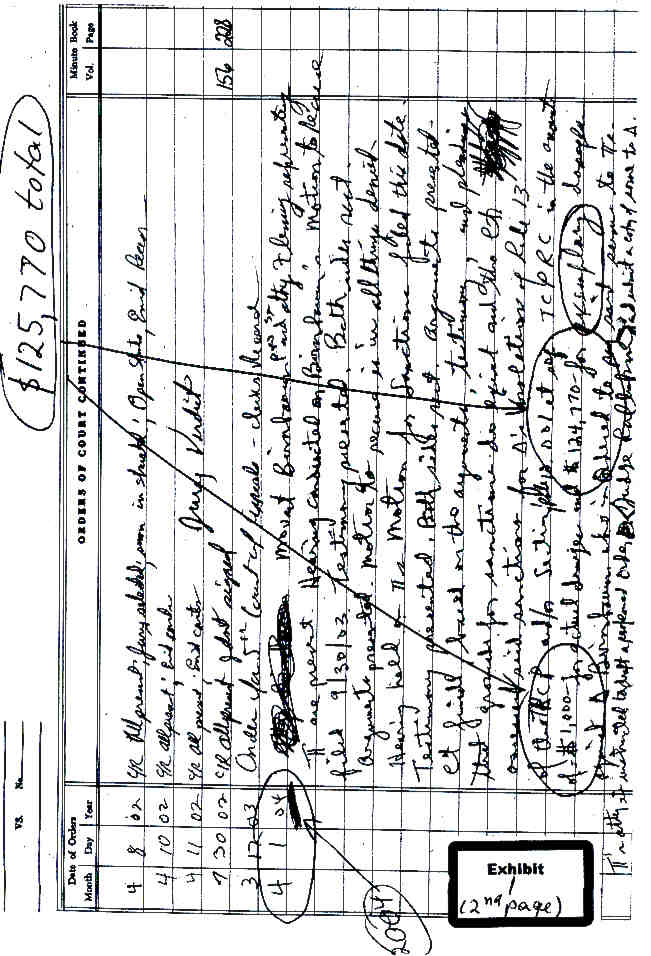 $125,770 total
VS.
No.
Date of Orders
Month Day Year
ORDERS OF COURT CONTINUED
Minute Book
Vol. Page
4 8 02 C/R All present; jury selected, sworn in & seated; Open State, Evid Recess
4 10 02 C/R all present; Evid conts
4 11 02 C/R all present Evid conts Jury Verdict
7 30 02 C/R all present J dmt signed 156 228
3 17 03 Order from Court of Appeals - clerks Record
4 1 04 Movant Birnbaum pro se and atty Fleming representing
π are present. Hearing conducted on Birnbaum's Motion to Recuse
filed 9/30/03. Testimony presented. Both sides rest.
Arguments presented. Motion to recuse is in all things denied.
Hearing held on π's Motion for Sanctions filed this date.
Testimony presented. Both sides rest. Arguments presented.
Ct finds based on the arguments, testimony and pleadings
that grounds for sanctions do exist and the Ct
assesses said sanctions for Δ's violations of Rule 13
of the TRCP and/or Section 10.001 et seq TCPRC in the amount
of $1,000- for actual damages and $124,770- for exemplary damages
against Δ Birnbaum, who is ordered to pay said sums to π's.
π's atty is instructed to draft a proposed Order, to Judge and submit a copy of same to Δ.
2004
Exhibit
1
(2nd page)